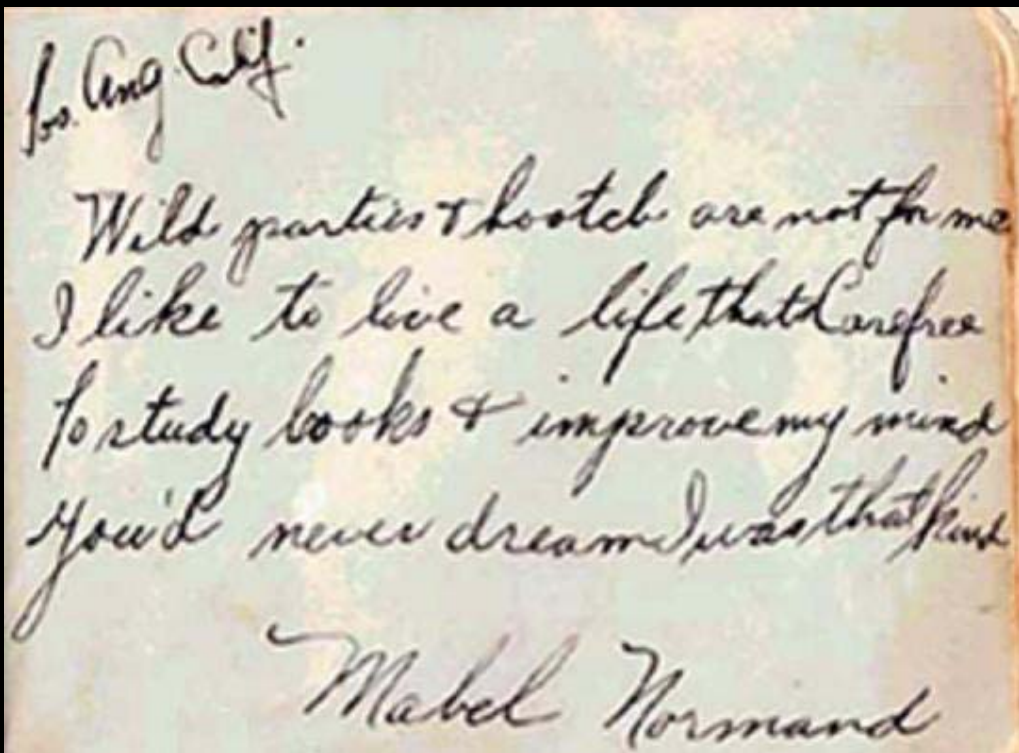 Los. Ang. Calif.
Wild parties & hootch are not for me
I like to live a life that Carefree
To study books & improve my mind
You'd never dream I was that kind
Mabel Normand